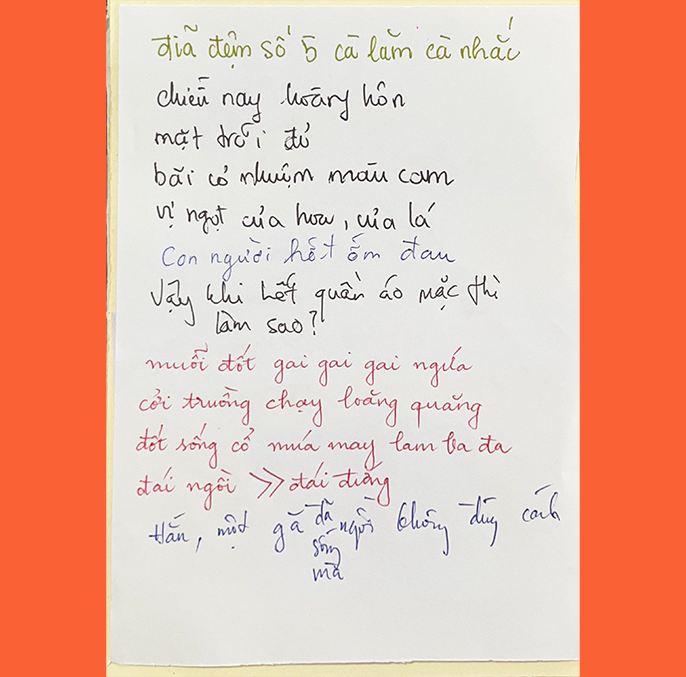 điã đệm số 5 cà lăm cà nhắc
chiều nay hoàng hôn
mặt trời đỏ
bãi cỏ nhuộm màu cam
vị ngọt của hoa, của lá
con người hết ốm đau
vậy khi hết quần áo mặc thì
làm sao?
muỗi đốt gai gai gai ngứa
cởi truồng chạy loăng quăng
đốt sống cổ múa may lam ba đa
đái ngồi >> đái đứng
Hắn, một gã đã ngồi không đúng cách
sống
mà